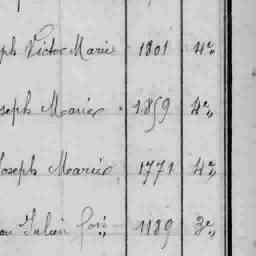 ph Victor Marie 1801 4e,,
seph Marie 1859 4e,,
Joseph Marie 1771 4e,,
Julien fois 1189 3e,,